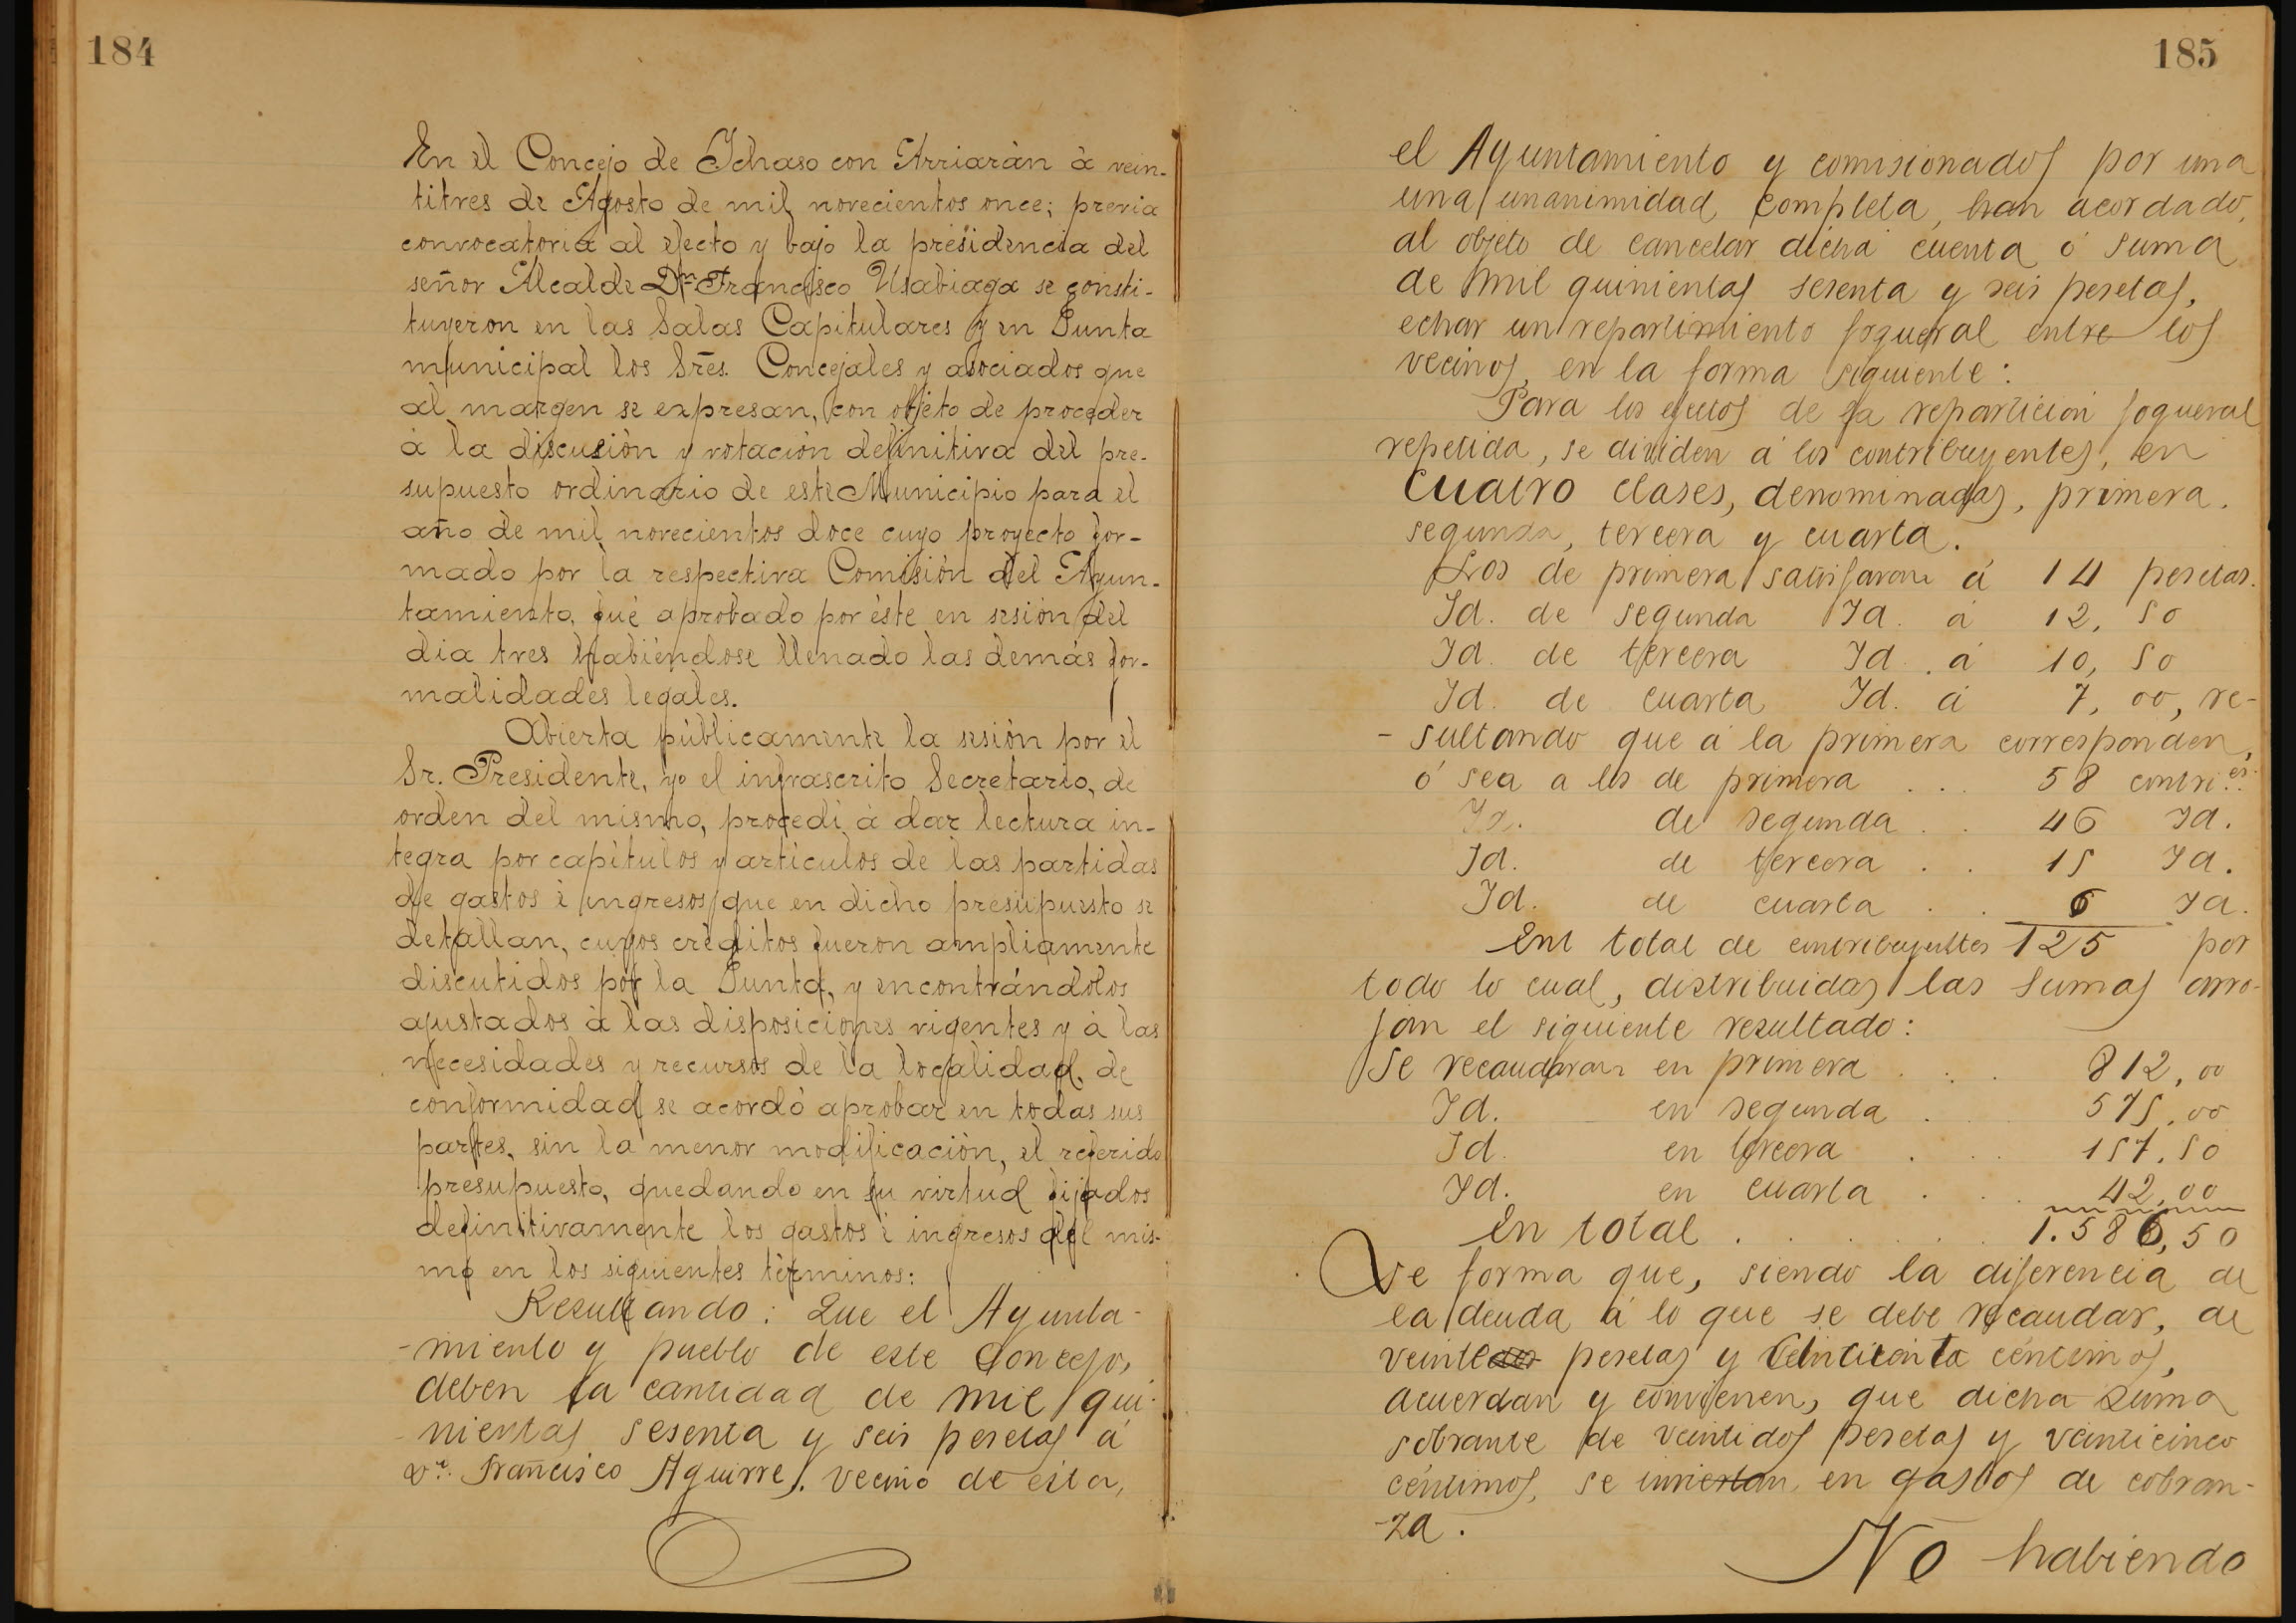 184
En el Concejo de Ichaso con Arriarán à vein-
titres de Agosto de mil novecientos once; previa
convocatoria al efecto y bajo la presidencia del
señor Alcalde Dn Francisco Usabiaga se consti-
tuyeron en las Salas Capitulares y en Junta
municipal los Sres. Concejales y asociados que
al margen se expresan, con objeto de proceder
à la discusiòn y votaciòn definitiva del pre-
supuesto ordinario de este Municipio para el
año de mil novecientos doce cuyo proyecto for-
mado por la respectiva Comisiòn del Ayun-
tamiento, fuè aprobado por èste en sesiòn del
dia tres habièndose llenado las demàs for-
malidades legales.
Abierta pùblicamente la sesiòn por el
Sr. Presidente, yo el infrascrito Secretario, de
orden del mismo, procedì à dar lectura in-
tegra por capìtulos y artìculos de las partidas
de gastos è ingresos que en dicho presupuesto se
detallan, cuyos crèditos fueron ampliamente
discutidos por la Junta, y encontràndolos
ajustados à las disposiciones vigentes y à las
necesidades y recursos de la localidad, de
conformidad se acordó aprobar en todas sus
partes, sin la menor modificaciòn, el referido
presupuesto, quedando en su virtud fijados
definitivamente los gastos è ingresos del mis-
mo en los siguientes tèrminos:
Resultando: Que el Ayunta-
-miento y pueblo de este Concejo,
deben la cantidad de mil qui-
-nientas sesenta y seis pesetas á
Dn. Francisco Aguirre, vecino de ésta,
185
el Ayuntamiento y comisionados por una
una unanimidad completa, han acordado,
al objeto de cancelar dicha cuenta ó suma
de mil quinientas sesenta y seis pesetas,
echar un repartimiento fogueral entre los
vecinos, en la forma siguiente:
Para los efectos de la reparticion fogueral
repetida, se dividen á los contribuyentes, en
cuatro clases, denominadas, primera,
segunda, tercera y cuarta.
Los de primera satisfaran á 14 pesetas.
Id. de segunda Id. á 12,50
Id. de tercera Id. á 10,50
Id. de cuarta Id. á 7,00, re-
-sultando que á la primera corresponden,
ó sea a los de primera . . . 58 contri.es
Id. de segunda . . 46 Id.
Id. de tercera . . 15 Id.
Id. de cuarta . . 6 Id.
En total de contribuyentes 125 por
todo lo cual, distribuidas las sumas arro-
jan el siguiente resultado:
Se recaudaran en primera . . . 812,00
Id. en segunda . . 575,00
Id. en tercera . . . 157,50
Id. en cuarta . . . 42,00
En total . . . . . . 1.586,50
De forma que, siendo la diferencia de
la deuda á lo que se debe recaudar, de
veinte pesetas y cincuenta céntimos,
acuerdan y convienen, que dicha suma
sobrante de veintidos pesetas y veinticinco
céntimos, se inviertan en gastos de cobran-
-za.
No habiendo